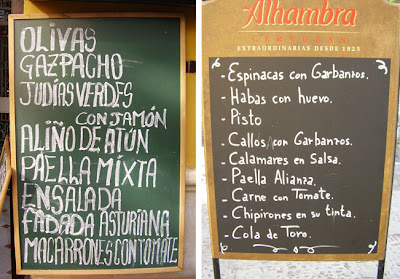 OLIVAS
GAZPACHO
JUDÍAS VERDES
CON JAMÓN
ALIÑO DE ATÚN
PAELLA MIXTA
ENSALADA
FADADA ASTURIANA
MACARRONES CON TOMATE
Alhambra
CERVEZAS
EXTRAORDINARIAS DESDE 1925
- Espinacas con Garbanzos.
- Habas con huevo.
- Pisto
- Callos con Garbanzos.
- Calamares en Salsa.
- Paella Alianza.
- Carne con Tomate.
- Chipirones en su tinta.
- Cola de Toro.